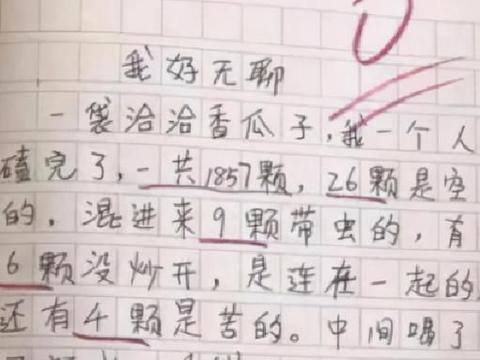 我好无聊
一袋洽洽香瓜子,我一个人
磕完了,一共1857颗,26颗是空
的,混进来9颗带虫的,有
6颗没炒开,是连在一起的
还有4颗是苦的。中间喝了